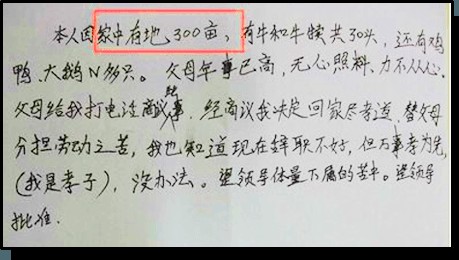 本人因家中有地、300亩，有牛和牛犊共30头，还有鸡
鸭、大鹅N多只。父母年事已高，无心照料、力不从心。
父母给我打电话商议替事，经商议我决定回家尽孝道，替父母
分担劳动之苦，我也知道现在辞职不好，但万事孝为先，
(我是孝子)，没办法。望领导体量下属的苦中。望领导
批准.